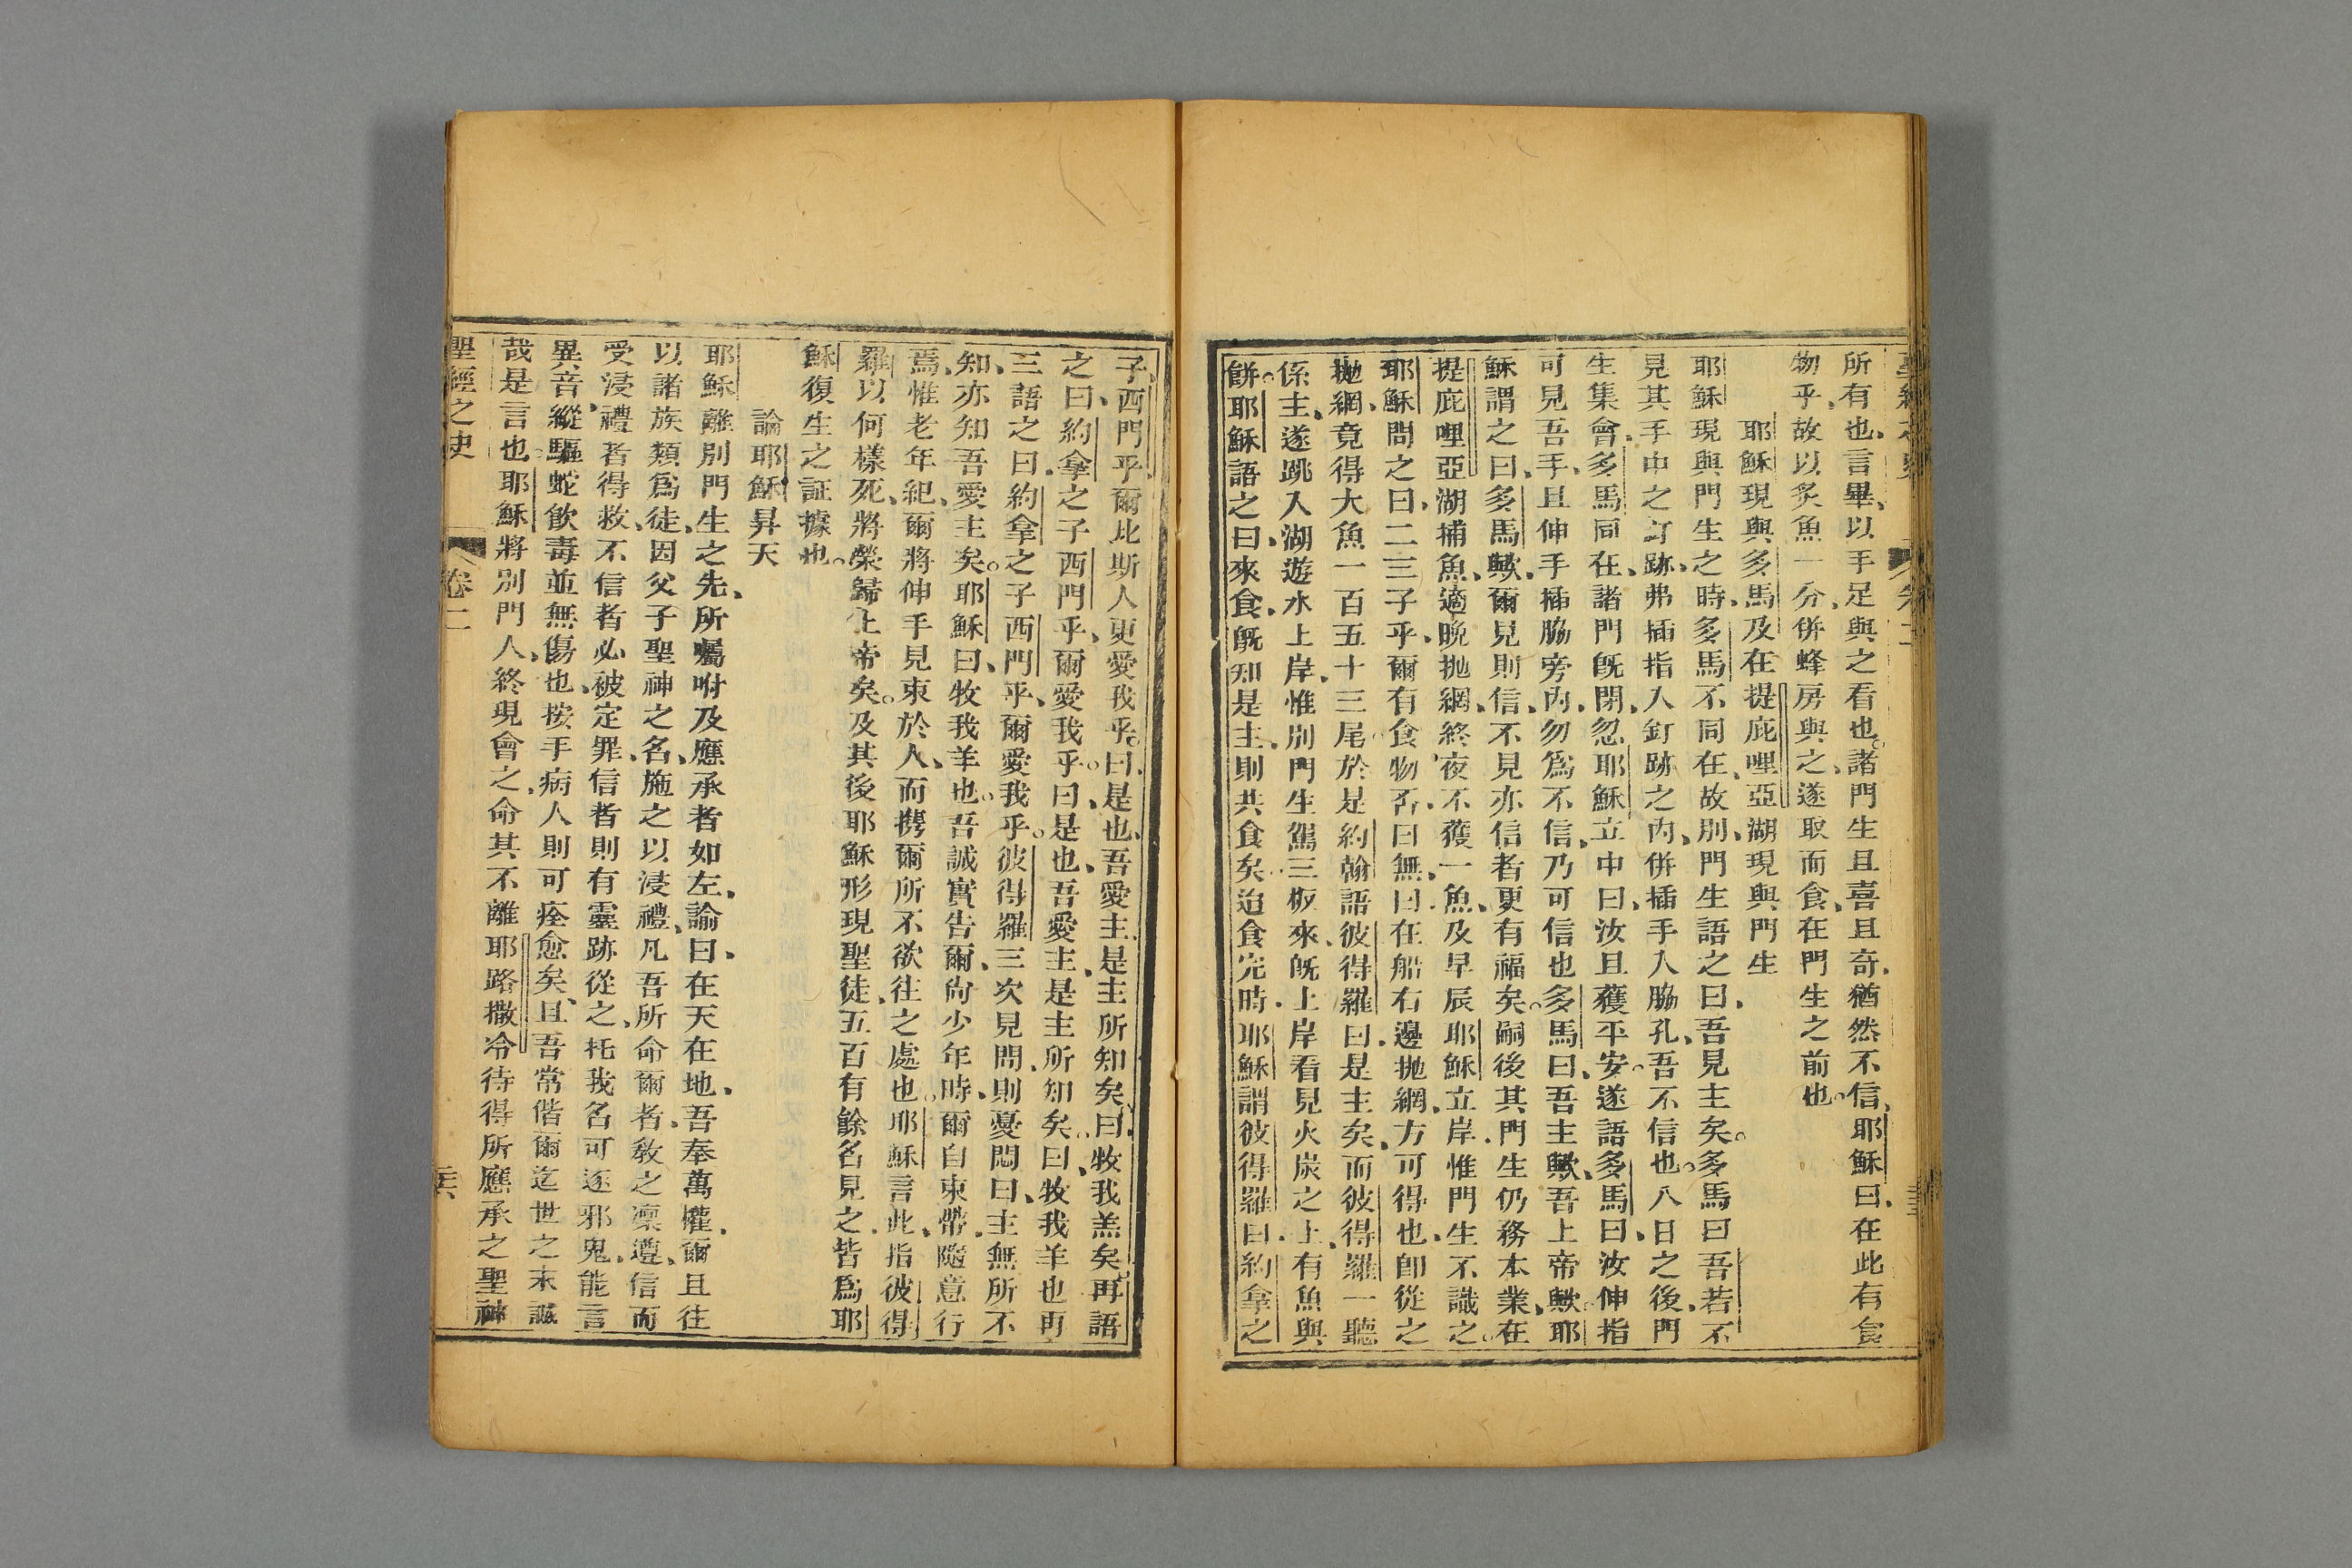 所有也、言畢、以手足與之看也。諸門生且喜且奇、猶然不信、耶穌曰、在此有食
物乎、故以炙魚一分、併蜂房與之、遂取而食、在門生之前也。
耶穌現與多馬、及在提庇哩亞湖現與門生
耶穌現與門生之時、多馬不同在、故別門生語之曰、吾見主矣。多馬曰吾若不
見其手中之釘跡、弗插指入釘跡之內、併插手入脇孔、吾不信也。八日之後、門
生集會、多馬同在、諸門既閉、忽耶穌立中曰、汝且獲平安。遂語多馬曰、汝伸指
可見吾手、且伸手插脇旁內、勿爲不信、乃可信也多馬曰、吾主歟、吾上帝歟。耶
穌謂之曰、多馬歟、爾見則信、不見亦信者更有福矣。嗣後其門生仍務本業、在
提庇哩亞湖捕魚、適晚拋網、終夜不獲一魚、及早辰耶穌立岸、惟門生不識之。
耶穌問之曰、二三子乎、爾有食物否、曰無、曰在船右邊拋網、方可得也、卽從之
拋網、竟得大魚一百五十三尾於是約翰語彼得羅曰是主矣、而彼得羅一聽
係主、遂跳入湖遊水上岸、惟別門生駕三板來、既上岸看見火炭之上、有魚與
餅。耶穌語之曰、來食、既知是主、則共食矣、迨食完時、耶穌謂彼得羅曰約拿之
子、西門乎、爾比斯人更愛我乎。曰、是也、吾愛主、是主所知矣、曰、牧我羔矣。再語
之曰、約拿之子西門乎、爾愛我乎。曰、是也、吾愛主、是主所知矣。曰、牧我羊也再
三語之曰、約拿之子西門乎、爾愛我乎。彼得羅三次見問、則憂悶曰、主無所不
知、亦知吾愛主矣。耶穌曰、牧我羊也。吾誠實告爾、尙少年時、爾自束帶、隨意行
焉、惟老年紀、爾將伸手見束於人、而携爾所不欲往之處也。耶穌言此、指彼得
羅以何樣死、將榮歸上帝矣。及其後耶穌形現聖徒、五百有餘名見之、皆爲耶
穌復生之証據也。
論耶穌昇天
耶穌離別門生之先、所囑咐及應承者如左、諭曰、在天在地、吾奉萬權、爾且往
以諸族類爲徒、因父子聖神之名、施之以浸禮、凡吾所命爾者、敎之凜遵、信而
受浸禮者得救、不信者必被定罪、信者則有靈跡從之、托我名可逐邪鬼、能言
異音、縱驅蛇飲毒並無傷也、按手病人則可痊愈矣、且吾常偕爾迄世之末、誠
哉是言也。耶穌將別門人、終現會之、命其不離耶路撒冷、待得所應承之聖神
聖經之史
卷二